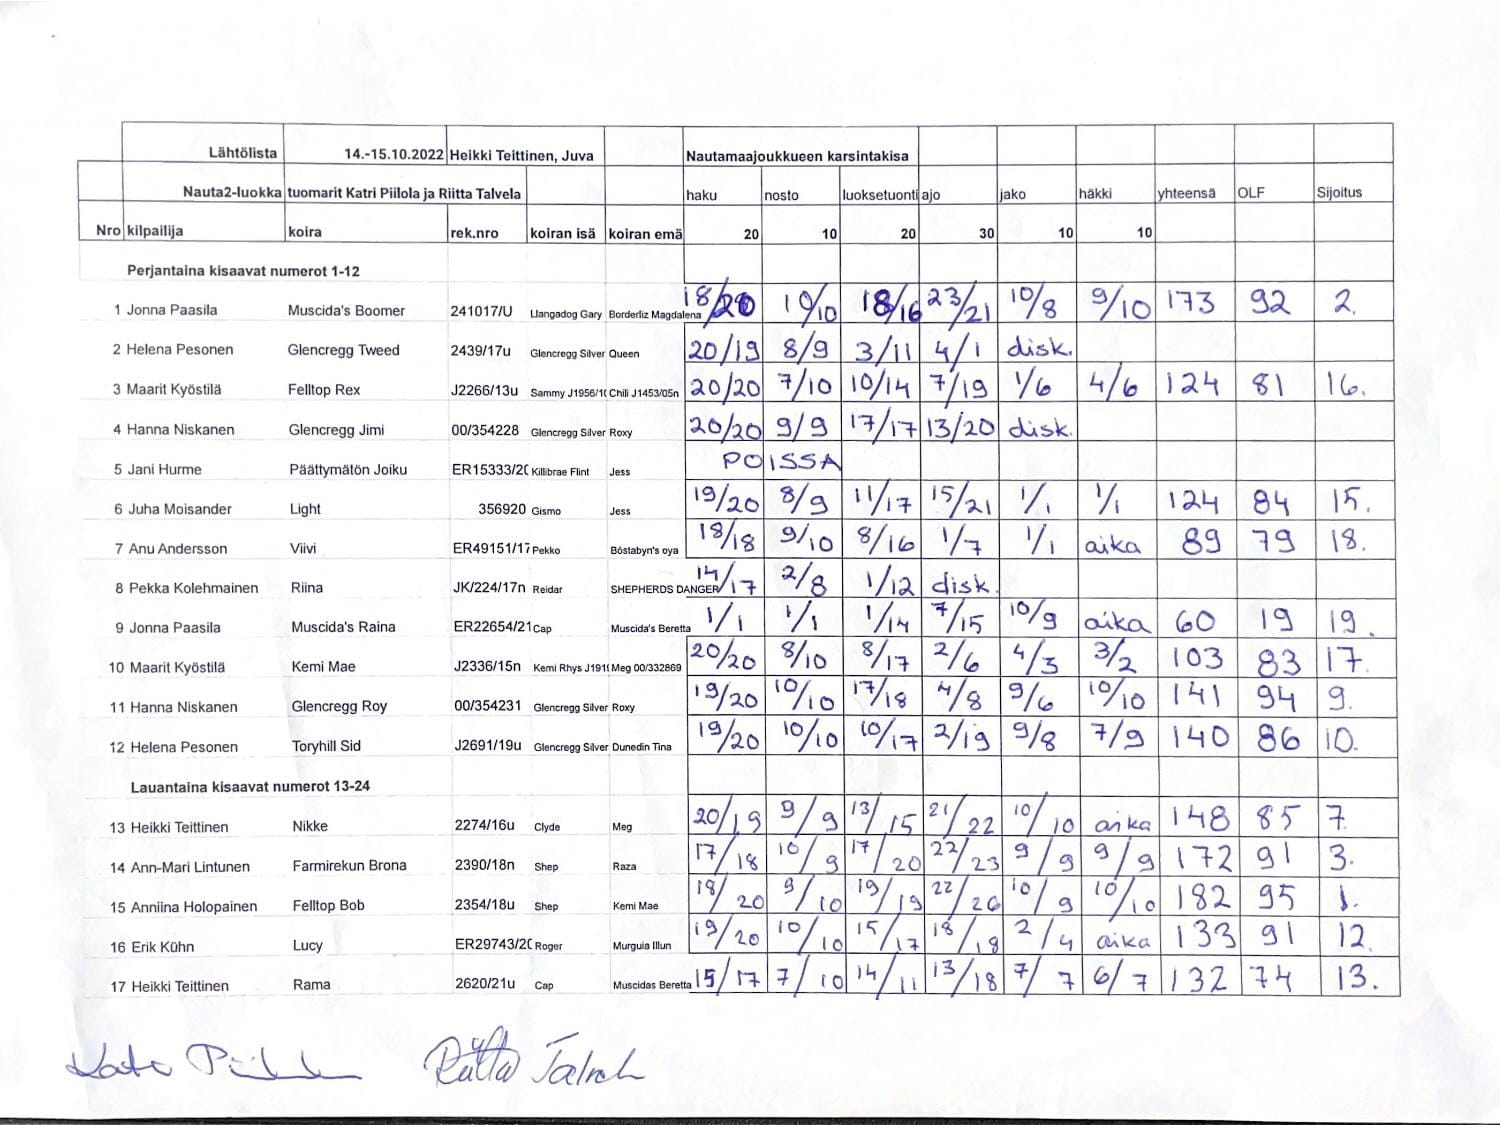 Lähtölista 14.-15.10.2022 Heikki Teittinen, Juva Nautamaajoukkueen karsintakisa
Nauta2-luokka tuomarit Katri Piilola ja Riitta Talvela haku nosto luoksetuonti ajo jako häkki yhteensä OLF Sijoitus
Nro kilpailija koira rek.nro koiran isä koiran emä 20 10 20 30 10 10
Perjantaina kisaavat numerot 1-12
1 Jonna Paasila Muscida's Boomer 241017/U Llangadog Gary Borderliz Magdalena 18/20 10/10 18/16 23/21 10/8 9/10 173 92 2.
2 Helena Pesonen Glencregg Tweed 2439/17u Glencregg Silver Queen 20/19 8/9 3/11 4/1 disk.
3 Maarit Kyöstilä Felltop Rex J2266/13u Sammy J1956/1( Chili J1453/05n 20/20 7/10 10/14 7/19 1/6 4/6 124 81 16.
4 Hanna Niskanen Glencregg Jimi 00/354228 Glencregg Silver Roxy 20/20 9/9 17/17 13/20 disk.
5 Jani Hurme Päättymätön Joiku ER15333/2( Killibrae Flint Jess POISSA
6 Juha Moisander Light 356920 Gismo Jess 19/20 8/9 11/17 15/21 1/1 1/1 124 84 15.
7 Anu Andersson Viivi ER49151/17 Pekko Böstabyn's oya 18/18 9/10 8/16 1/7 1/1 aika 89 79 18.
8 Pekka Kolehmainen Riina JK/224/17n Reidar SHEPHERDS DANGER 14/17 2/8 1/12 disk.
9 Jonna Paasila Muscida's Raina ER22654/21 Cap Muscida's Beretta 1/1 1/1 1/14 7/15 10/9 aika 60 19 19.
10 Maarit Kyöstilä Kemi Mae J2336/15n Kemi Rhys J191 Meg 00/332869 20/20 8/10 8/17 2/6 4/3 3/2 103 83 17.
11 Hanna Niskanen Glencregg Roy 00/354231 Glencregg Silver Roxy 19/20 10/10 17/18 4/8 9/6 10/10 141 94 9.
12 Helena Pesonen Toryhill Sid J2691/19u Glencregg Silver Dunedin Tina 19/20 10/10 10/17 2/19 9/8 7/9 140 86 10.
Lauantaina kisaavat numerot 13-24
13 Heikki Teittinen Nikke 2274/16u Clyde Meg 20/19 9/9 13/15 21/22 10/10 aika 148 85 7.
14 Ann-Mari Lintunen Farmirekun Brona 2390/18n Shep Raza 17/18 10/9 17/20 22/23 9/9 9/9 172 91 3.
15 Anniina Holopainen Felltop Bob 2354/18u Shep Kemi Mae 18/20 9/10 19/19 22/26 10/9 10/10 182 95 1.
16 Erik Kühn Lucy ER29743/2( Roger Murguia Illun 19/20 10/10 15/17 18/18 2/4 aika 133 91 12.
17 Heikki Teittinen Rama 2620/21u Cap Muscidas Beretta 15/17 7/10 14/11 13/18 7/7 6/7 132 74 13.